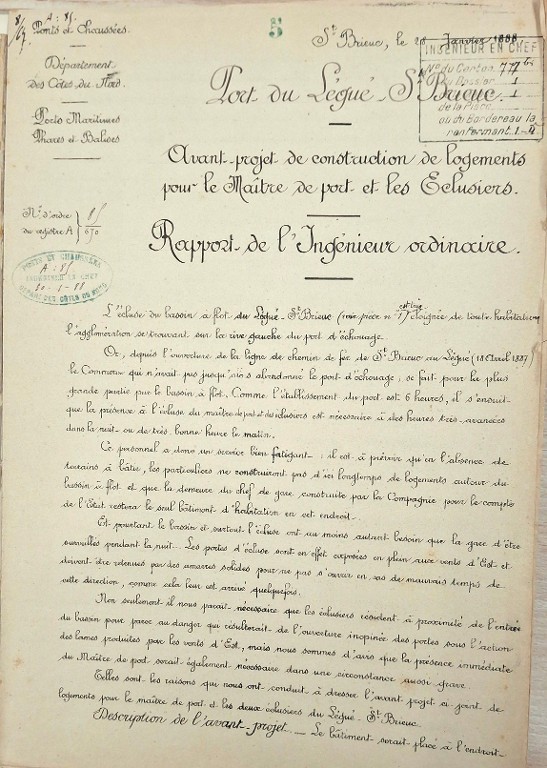 5
A : 85.
Ponts et Chaussées.
St Brieuc, le 28 Janvier 1888.
Département
des Côtes du Nord.
Ports Maritimes
Phares et Balises
INGÉNIEUR EN CHEF
No du Carton 77 bis
du Dossier 1
de la Pièce 1
ou du Bordereau la
renfermant 1-4
Port du Légué - St Brieuc.
Avant-projet de construction de logements
pour le Maître de port et les Eclusiers.
No d'ordre } 85
du registre A } 670
Rapport de l'Ingénieur ordinaire.
PONTS ET CHAUSSÉES
A : 85
INGÉNIEUR EN CHEF
30-1-88
DÉPART. DES CÔTES DU NORD
L'écluse du bassin à flot du Légué - St Brieuc (voir pièce no 1) est très éloignée de toute habitation,
l'agglomération se trouvant sur la rive gauche du port d'échouage.
Or, depuis l'ouverture de la ligne de chemin de fer de St Brieuc au Légué (18 Avril 1887)
le Commerce qui n'avait pas jusqu'alors abandonné le port d'échouage, se fait pour la plus
grande partie par le bassin à flot. Comme l'établissement du port est 6 heures, il s'ensuit
que la présence à l'écluse du maître de port et des éclusiers est nécessaire à des heures très avancées
dans la nuit ou de très bonne heure le matin.
Ce personnel a donc un service bien fatigant : il est à prévoir qu'en l'absence de
terrains à bâtir, les particuliers ne construiront pas d'ici longtemps de logements autour du
bassin à flot et que la demeure du chef de gare construite par la Compagnie pour le compte
de l'Etat restera le seul bâtiment d'habitation en cet endroit.
Et pourtant le bassin et surtout l'écluse ont au moins autant besoin que la gare d'être
surveillés pendant la nuit. Les portes d'écluse sont en effet exposées en plein aux vents d'Est et
doivent être retenues par des amarres solides pour ne pas s'ouvrir en cas de mauvais temps de
cette direction, comme cela leur est arrivé quelquefois.
Non seulement il nous paraît nécessaire que les éclusiers résident à proximité de l'entrée
du bassin pour parer au danger qui résulterait de l'ouverture inopinée des portes sous l'action
des lames produites par les vents d'Est, mais nous sommes d'avis que la présence immédiate
du Maître de port serait également nécessaire dans une circonstance aussi grave.
Telles sont les raisons qui nous ont conduit à dresser l'avant projet ci-joint de
logements pour le maître de port et les deux éclusiers du Légué - St Brieuc.
Description de l'avant-projet. _ Le bâtiment serait placé à l'endroit